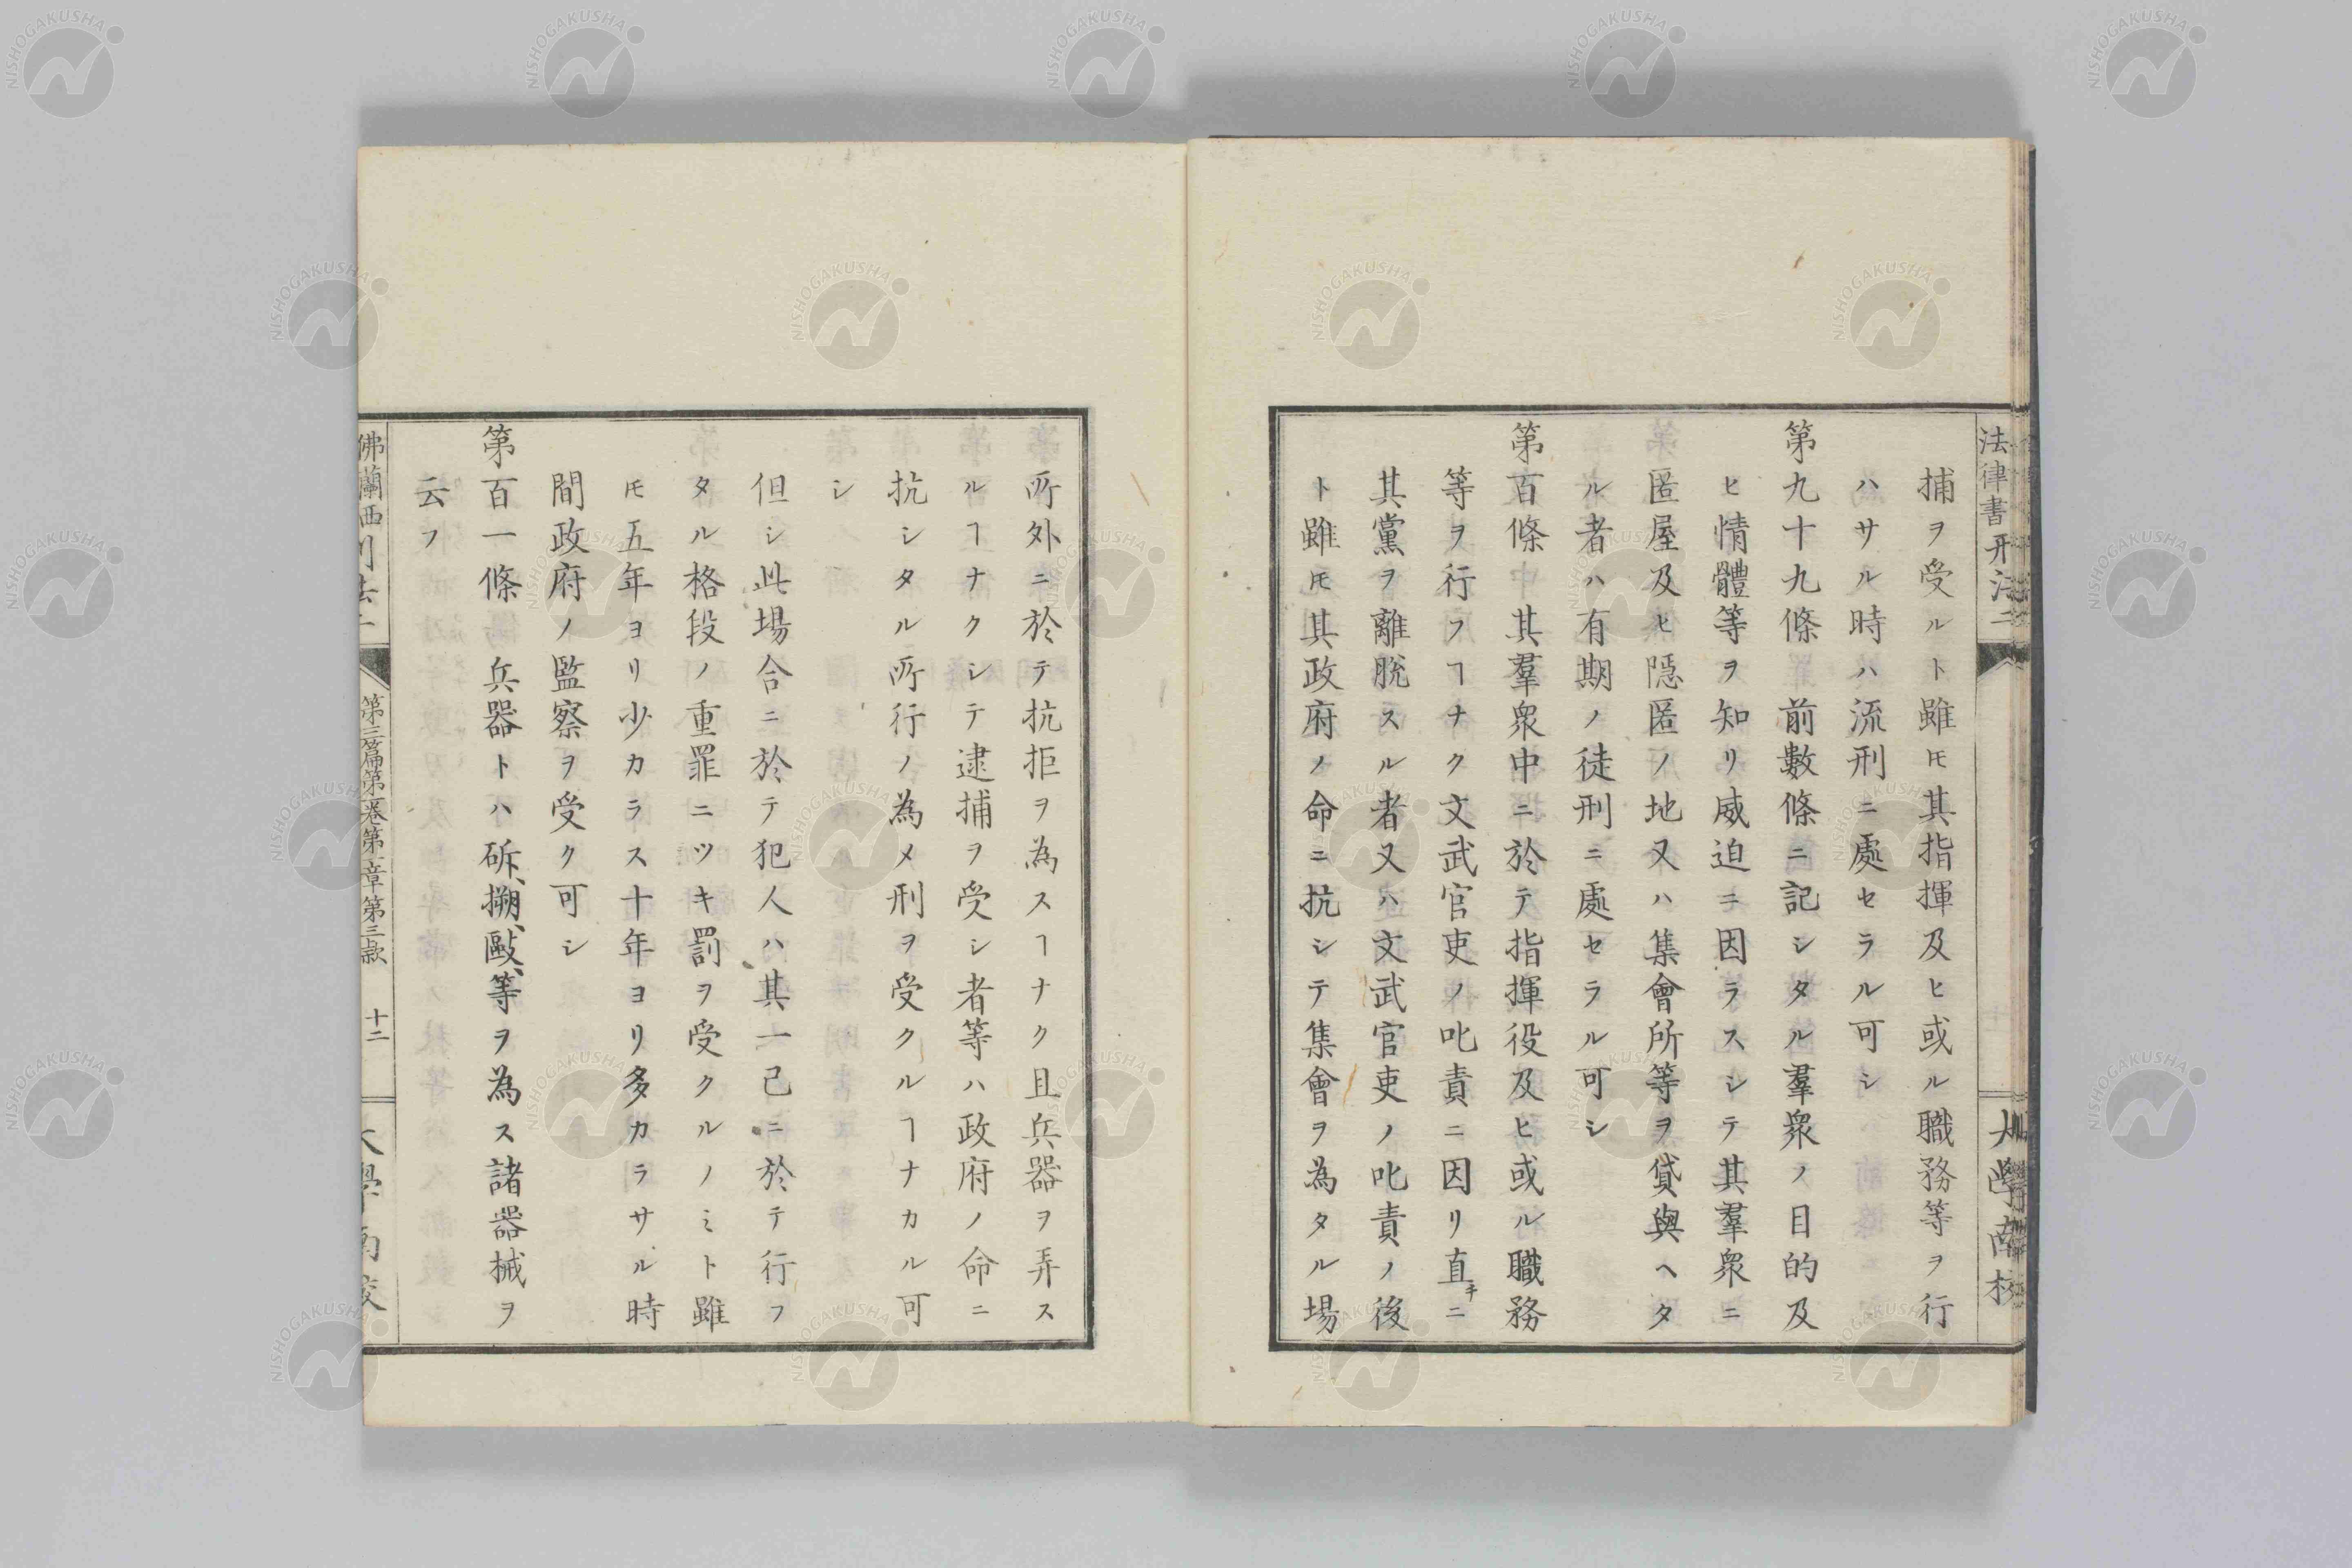 法律書刑法二
大學南校
捕ヲ受ルト雖𪜈其指揮及ヒ或ル職務等ヲ行
ハサル時ハ流刑ニ處セラル可シ
第九十九條 前數條ニ記シタル羣衆ノ目的及
ヒ情體等ヲ知リ威迫ニ因ラスシテ其羣衆ニ
匿屋及ヒ隠匿ノ地又ハ集會所等ヲ貸與ヘタ
ル者ハ有期ノ徒刑ニ處セラル可シ
第百條 其羣衆中ニ於テ指揮役及ヒ或ル職務
等ヲ行フヿナク文武官吏ノ叱責ニ因リ直チニ
其黨ヲ離脱スル者又ハ文武官吏ノ叱責ノ後
ト雖𪜈其政府ノ命ニ抗シテ集會ヲ為タル場
所外ニ於テ抗拒ヲ為スヿナク且兵器ヲ弄ス
ルヿナクシテ逮捕ヲ受シ者等ハ政府ノ命ニ
抗シタル所行ノ為メ刑ヲ受クルヿナカル可
シ
但シ此場合ニ於テ犯人ハ其一己ニ於テ行フ
タル格段ノ重罪ニツキ罰ヲ受クルノミト雖
𪜈五年ヨリ少カラス十年ヨリ多カラサル時
間政府ノ監察ヲ受ク可シ
第百一條 兵器トハ斫、搠、毆、等ヲ為ス諸器械ヲ
云フ
佛蘭西刑法二
第三篇第一巻第一章第三款
十二
大學南校
NISHOGAKUSHA